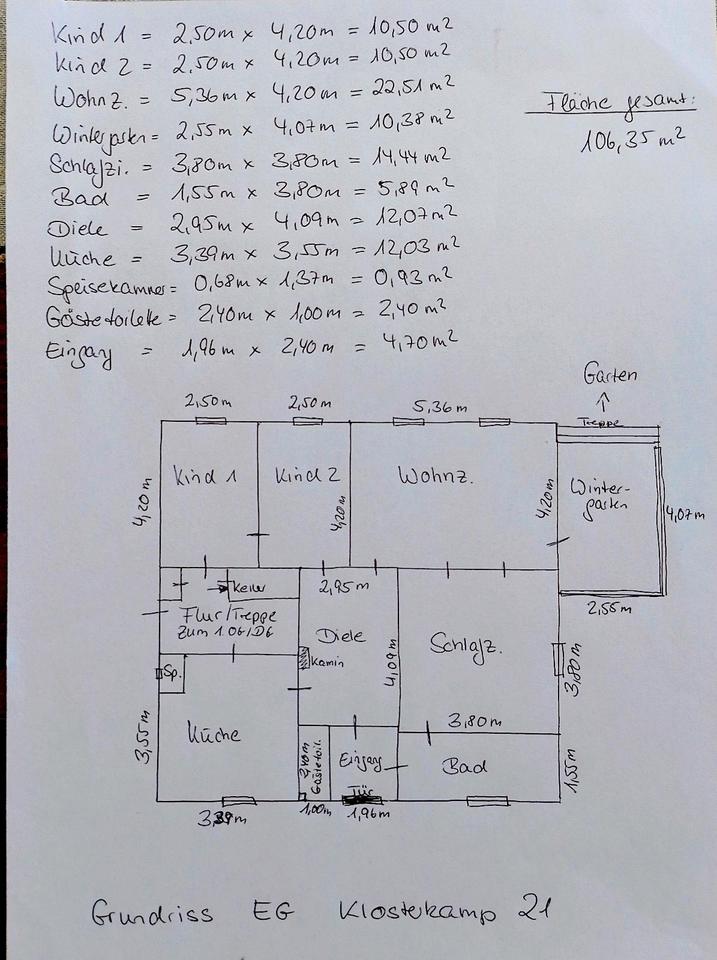 Kind 1 = 2,50m x 4,20m = 10,50 m²
Kind 2 = 2,50m x 4,20m = 10,50 m²
Wohnz. = 5,36m x 4,20m = 22,51 m²
Wintergarten = 2,55m x 4,07m = 10,38 m²
Schlafzi. = 3,80m x 3,80m = 14,44 m²
Bad = 1,55m x 3,80m = 5,89 m²
Diele = 2,95m x 4,09m = 12,07 m²
Küche = 3,39m x 3,55m = 12,03 m²
Speisekammer = 0,68m x 1,37m = 0,93 m²
Gästetoilette = 2,40m x 1,00m = 2,40 m²
Eingang = 1,96m x 2,40m = 4,70 m²
Fläche gesamt:
106,35 m²
Garten
↑
Treppe
2,50m
2,50m
5,36m
4,20m
Kind 1
Kind 2
4,20m
Wohnz.
4,20m
Winter-
garten
4,07m
2,55m
→ Keller
Flur/Treppe
zum 1.OG/DG
2,95m
Diele
Kamin
4,09m
Schlafz.
3,80m
3,80m
Sp.
Küche
3,55m
3,39m
2,40m
Gästetoil.
1,00m
Eingang
Tür
1,96m
Bad
1,55m
Grundriss EG Klosterkamp 21